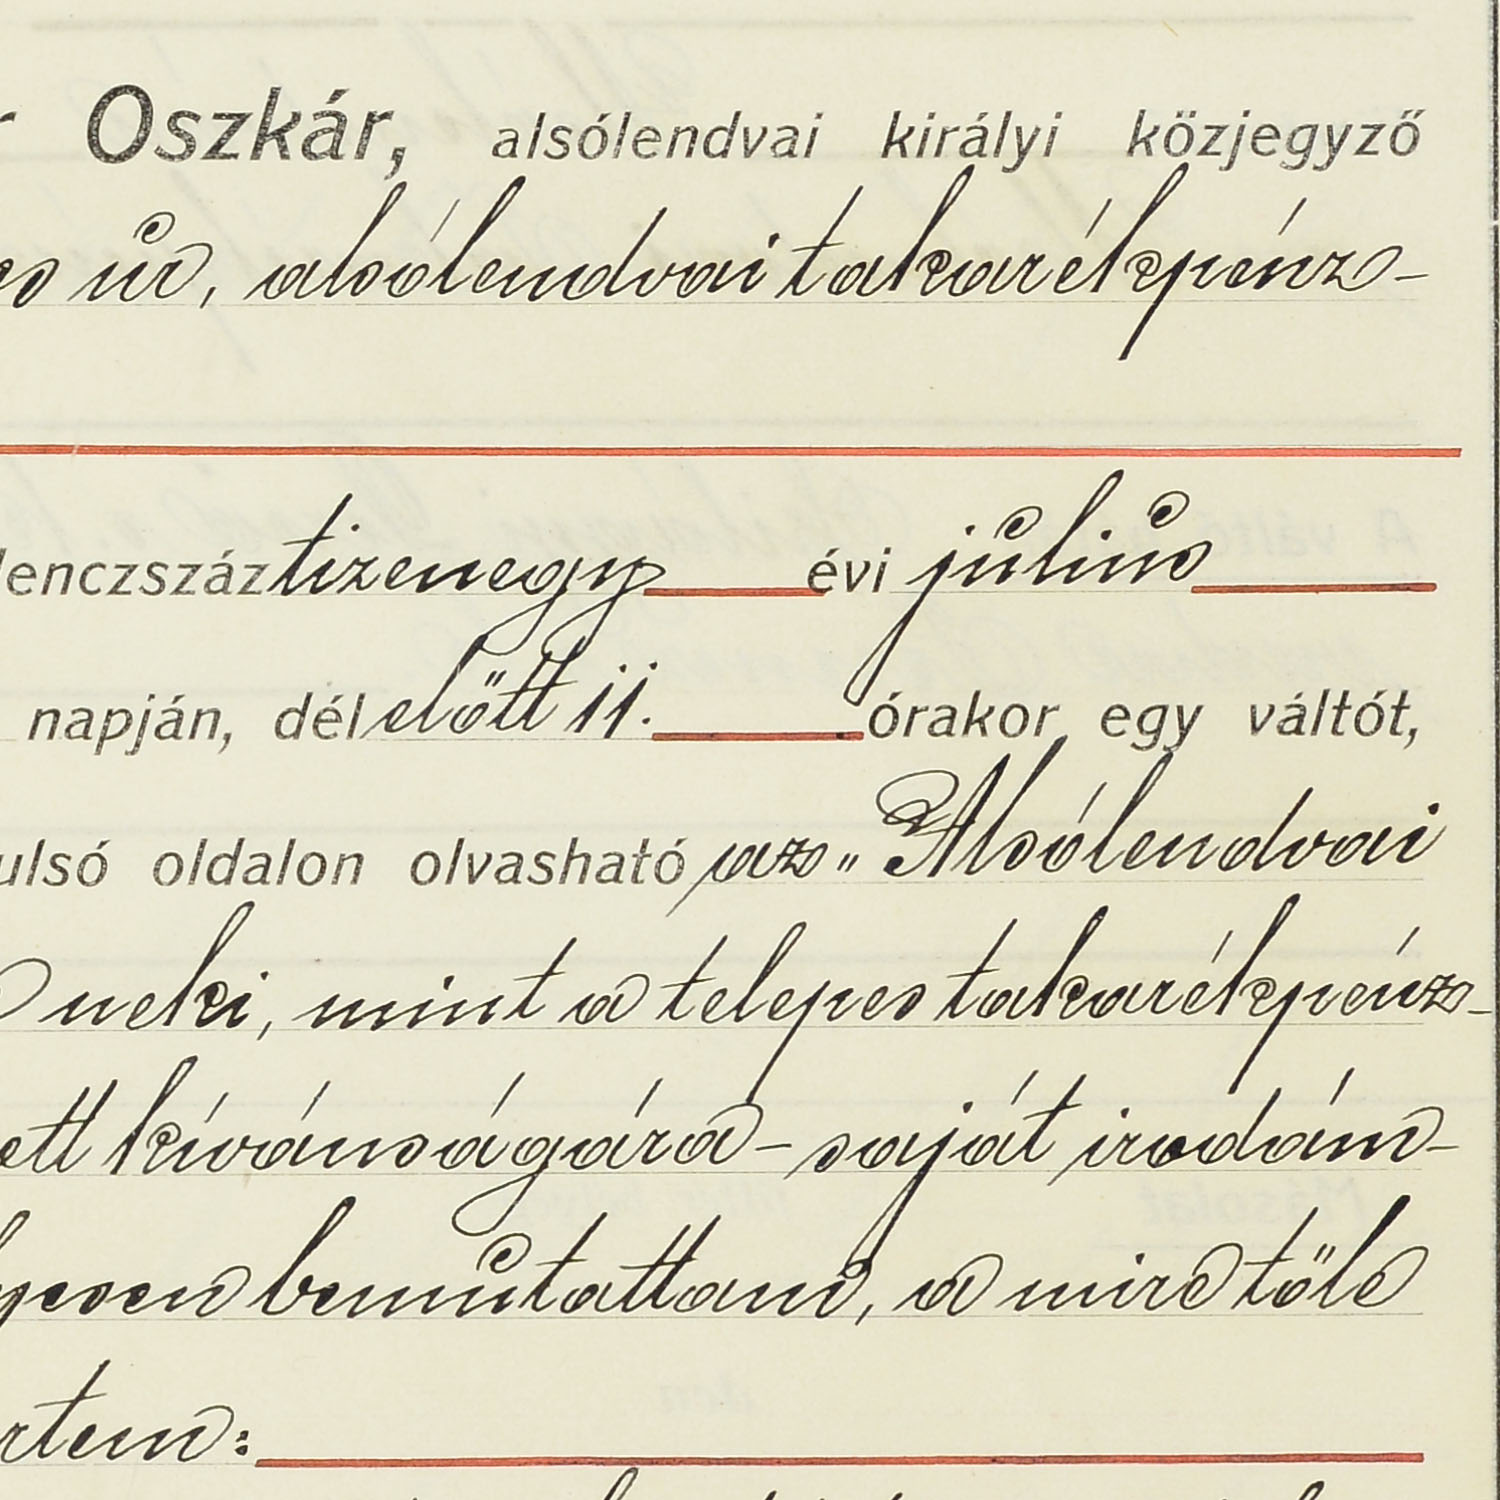 r Oszkár, alsólendvai királyi közjegyző
es úr, alsólendvai takarékpénz-
lenczszáz tizenegy évi július
napján, délelőtt 11. órakor egy váltót,
ulsó oldalon olvasható az „Alsólendvai
neki, mint a telepes takarékpénz-
ett kívánságára - saját irodám-
yesen bemutattam, a mire tőle
rtem: